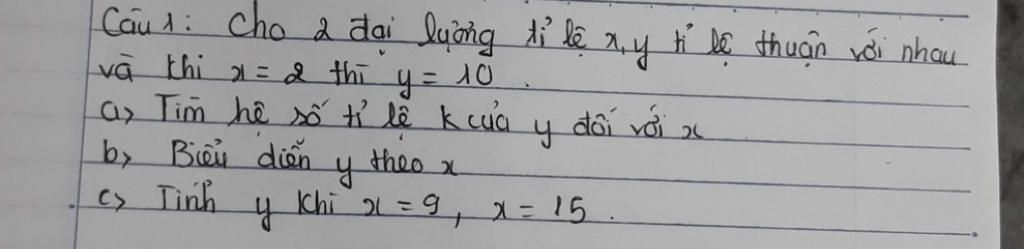 Câu 1: Cho 2 đại lượng tỉ lệ x, y tỉ lệ thuận với nhau
và khi x = 2 thì y = 10.
a> Tìm hệ số tỉ lệ k của y đối với x
b> Biểu diễn y theo x
c> Tính y khi x = 9, x = 15.